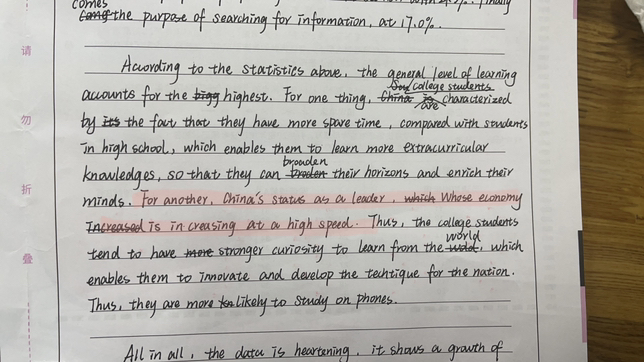 comes
the purpose of searching for information, at 17.0%.
According to the statistics above, the general level of learning
accounts for the highest. For one thing, college students are characterized
by the fact that they have more spare time, compared with students
in high school, which enables them to learn more extracurricular
knowledges, so that they can broaden their horizons and enrich their
minds. For another, China's status as a leader, whose economy
is in creasing at a high speed. Thus, the college students
tend to have stronger curiosity to learn from the world, which
enables them to innovate and develop the techtique for the nation.
Thus, they are more likely to study on phones.
All in all, the data is heartening, it shows a growth of
请
勿
折
叠